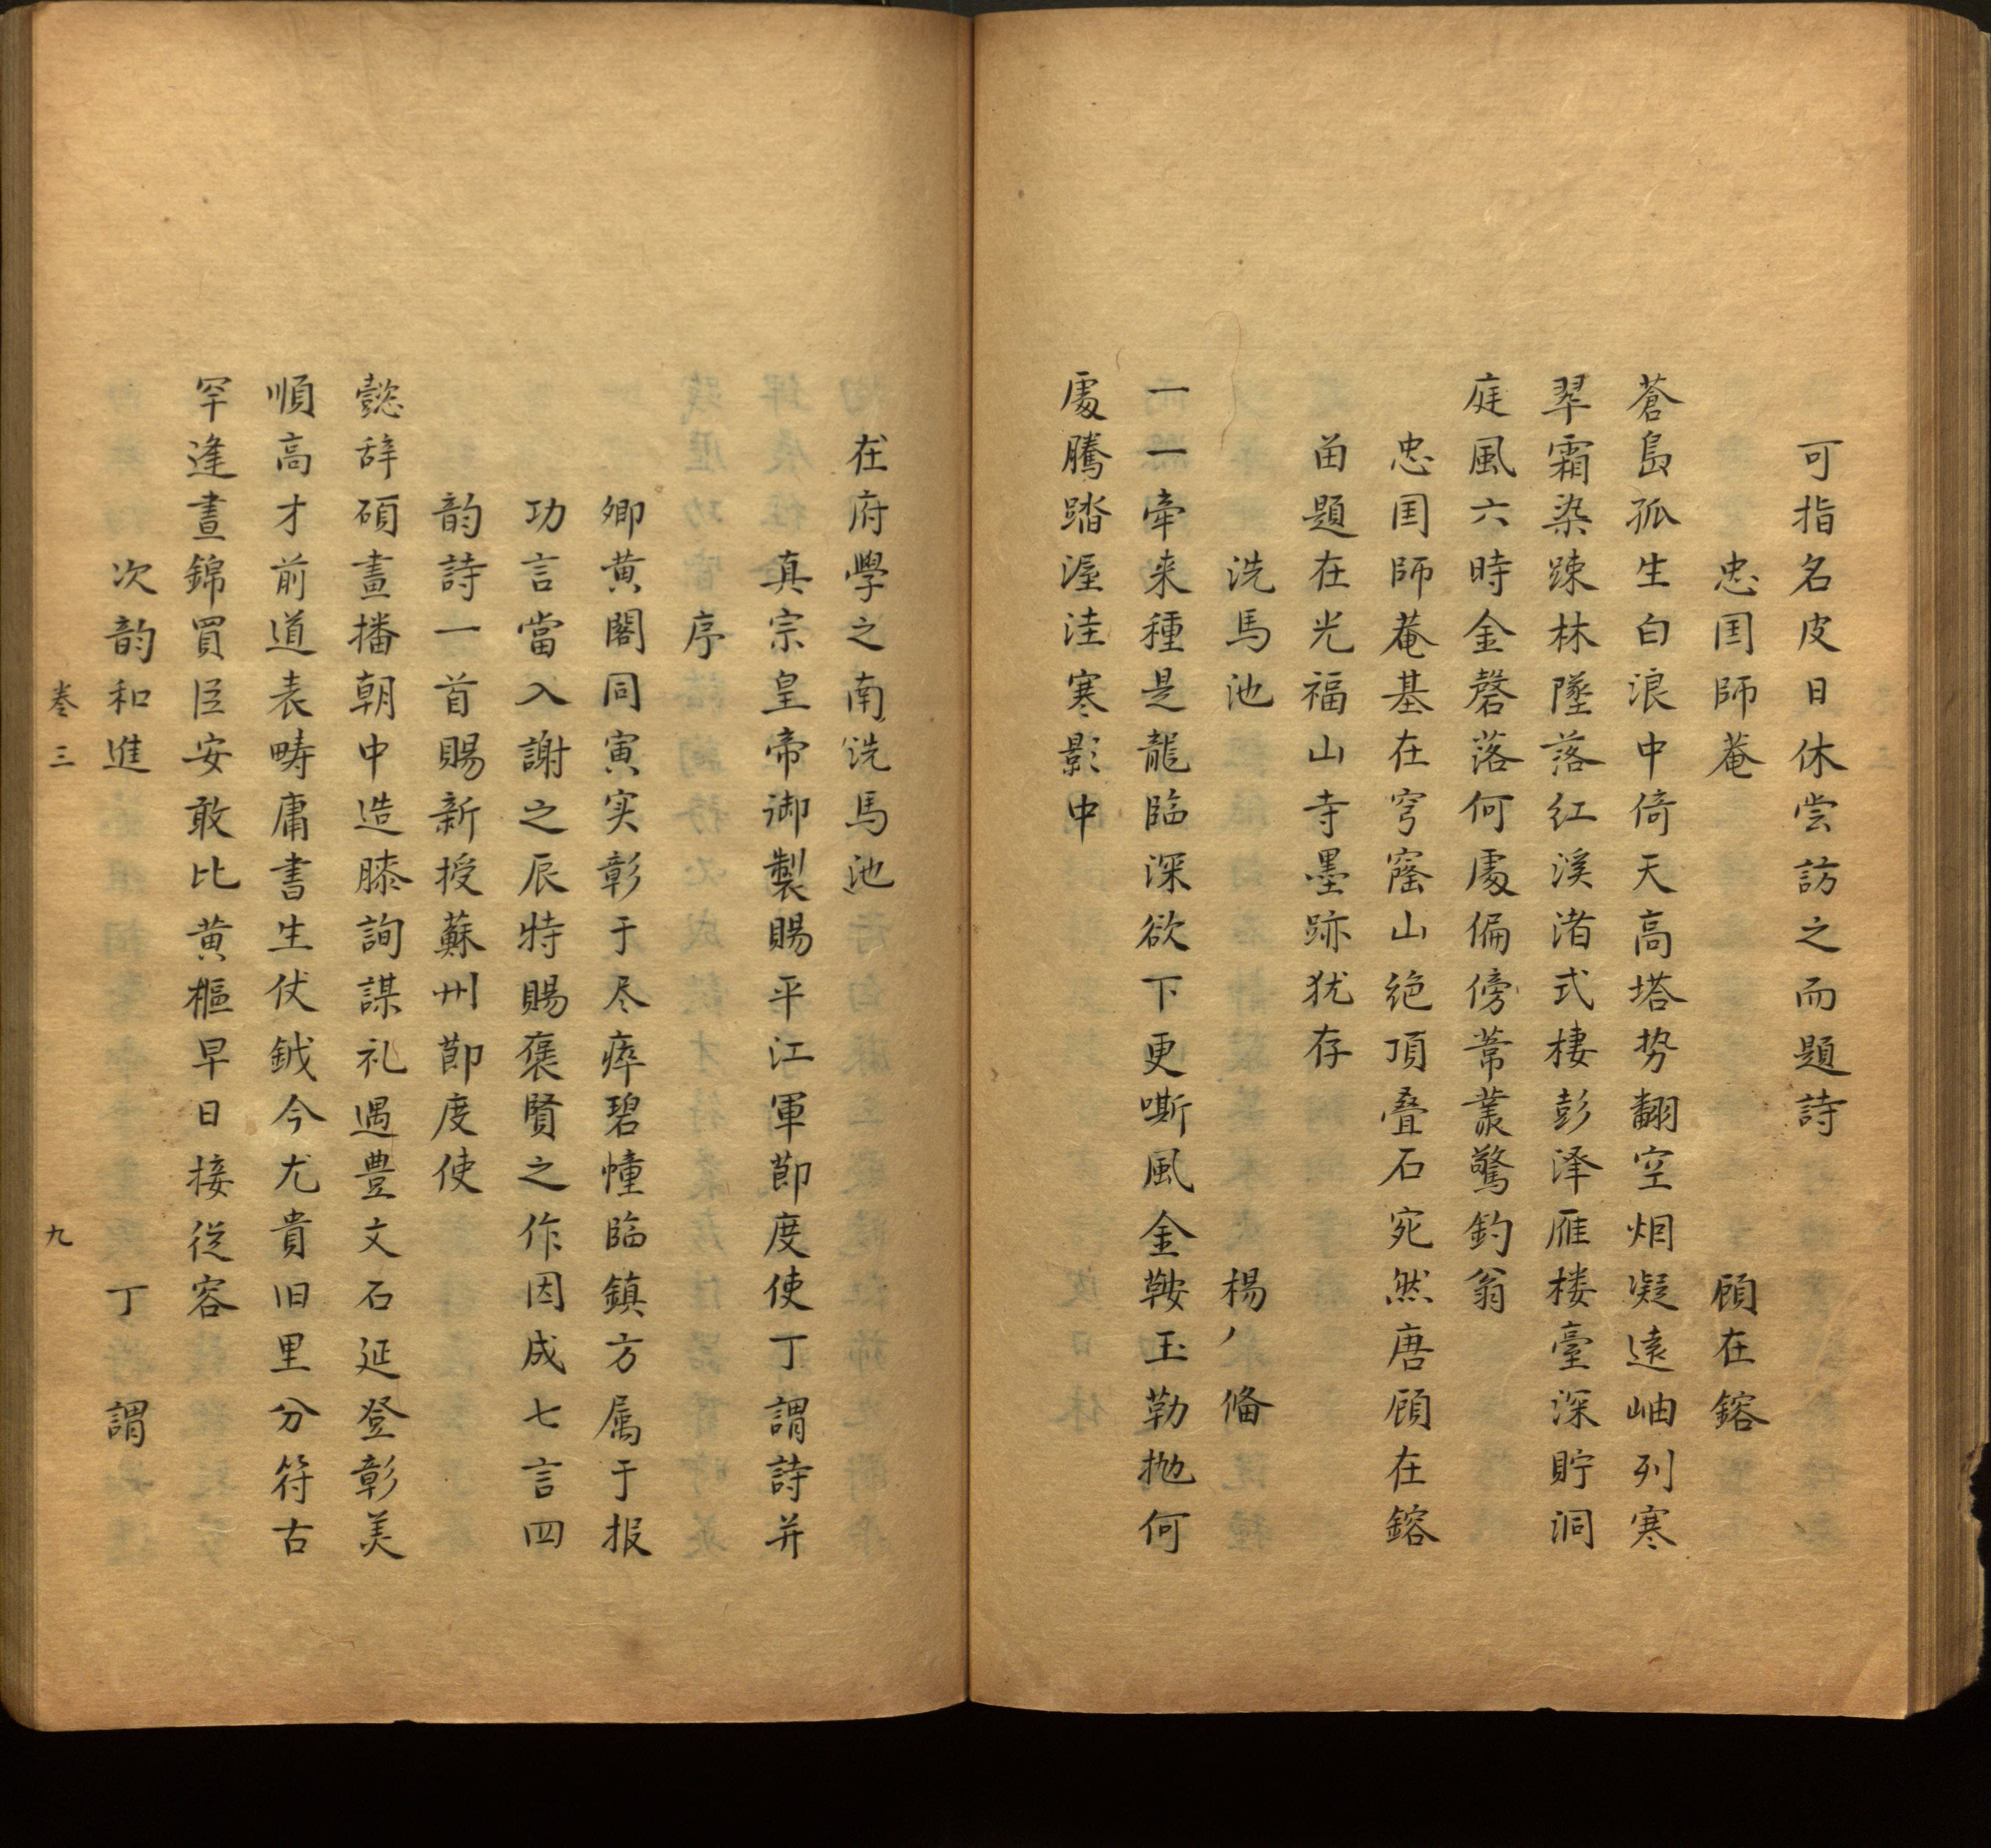 可指名皮日休尝訪之而題詩
忠囯師菴 顾在鎔
蒼島孤生白浪中倚天高塔势翻空烟凝遠岫列寒
翠霜染踈林墜落红溪渚式棲彭泽雁楼臺深貯洞
庭風六時金磬落何處偏傍蒂叢驚釣翁
忠囯師菴基在穹窿山绝頂叠石宛然唐顾在鎔
畄題在光福山寺墨跡犹存
洗馬池 楊 俻
一一牵来種是龍臨深欲下更嘶風金鞍玉勒抛何
處騰踏渥洼寒影中
在府學之南洗馬池
真宗皇帝御製賜平江軍節度使丁謂詩并
序
卿黄閣同寅实彰于尽瘁碧幢臨鎮方属于报
功言當入謝之辰特賜褒賢之作因成七言四
韵詩一首賜新授蘇州節度使
懿辞碩畫播朝中造膝詢謀礼遇豊文石延登彰美
順高才前道表畴庸書生仗鉞今尤貴旧里分符古
罕逢晝錦買臣安敢比黄樞早日接従容
次韵和進 丁 謂
卷三 九